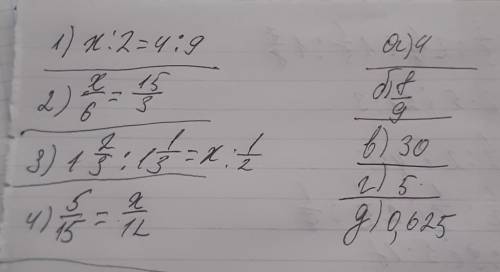 1) x : 2 = 4 : 9
2) x/6 = 15/3
3) 1 2/3 : 1 1/3 = x : 1/2
4) 5/15 = x/12
а) 4
б) 8/9
в) 30
г) 5
д) 0,625